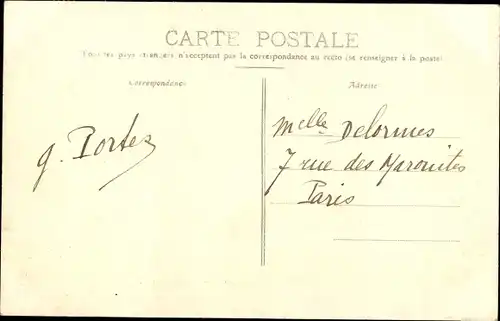 CARTE POSTALE
Tous les pays étrangers n'acceptent pas la correspondance au recto (se renseigner à la poste)
Correspondance
Adresse
G. Portez
Melle Delormes
7 rue des Maronites
Paris